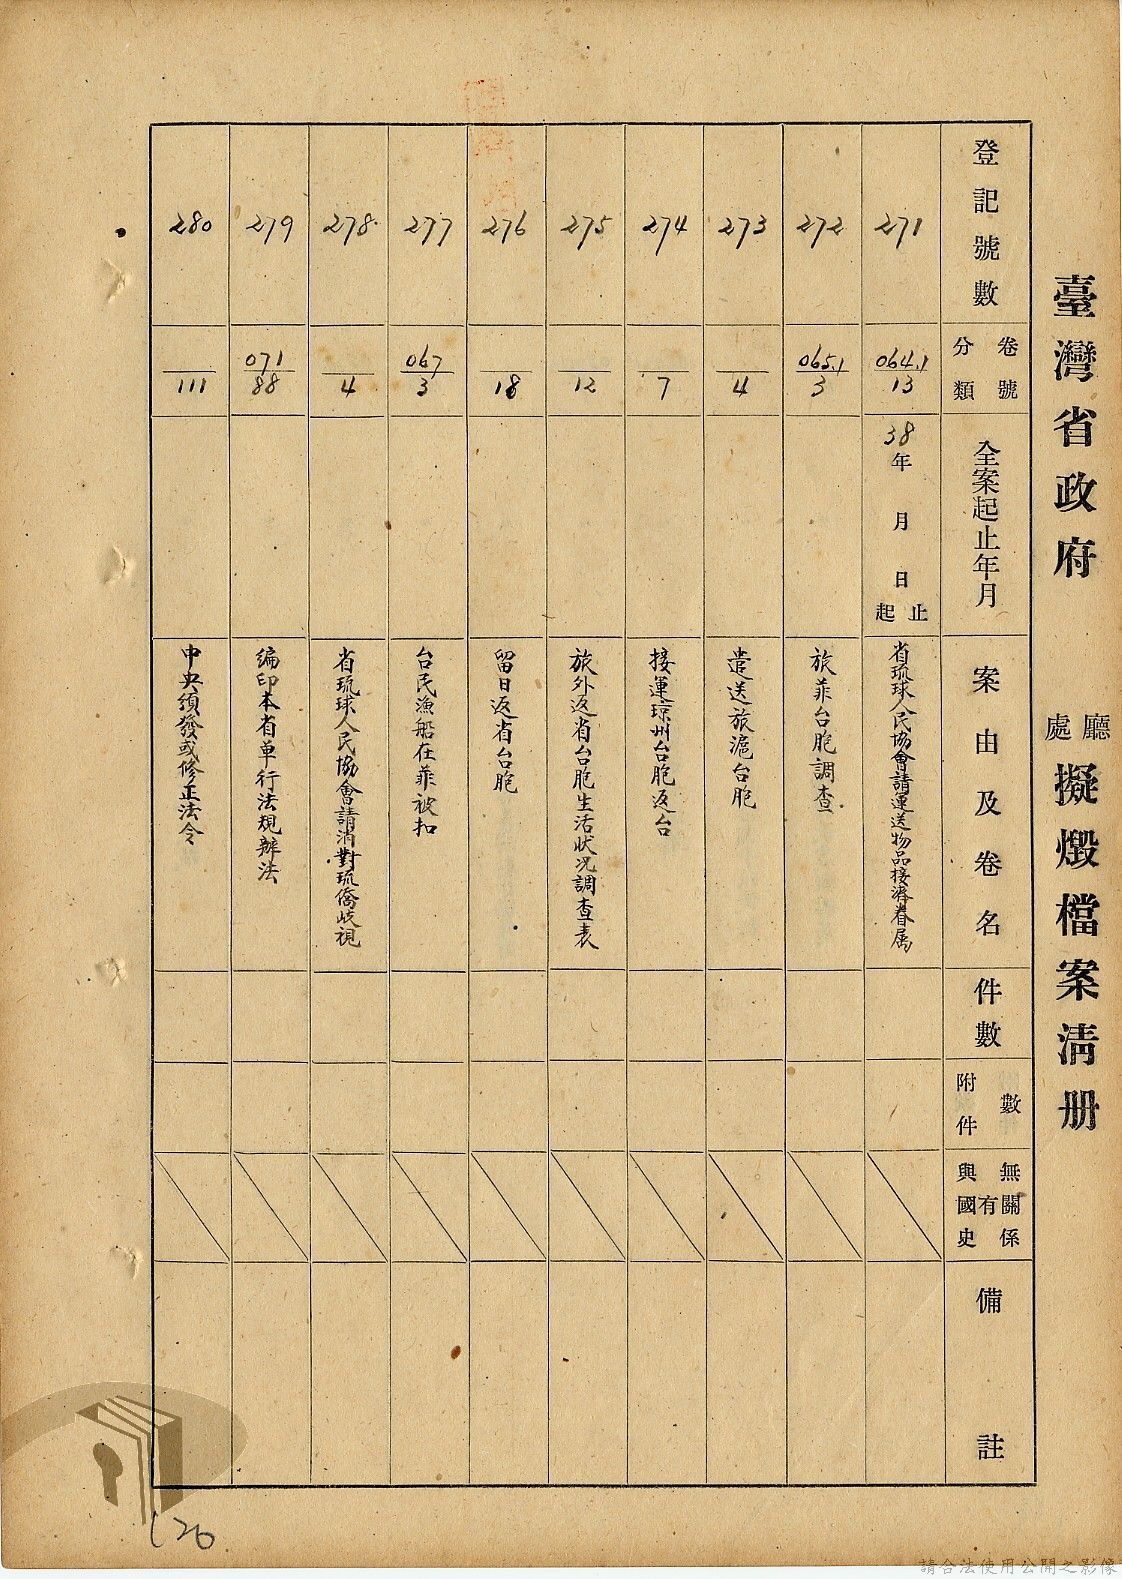 臺灣省政府
廳
處
擬燬檔案清册
登記號數
卷號
分類
全案起止年月
案由及卷名
件數
附件
數
與國史
有
無關係
備註
271
064.1
13
38年 月 日
止
起
省琉球人民協會請運送物品接濟眷属
272
065.1
3
旅菲台胞調查
273
4
遣送旅滬台胞
274
7
接運琼州台胞返台
275
12
旅外返省台胞生活狀况調查表
276
18
留日返省台胞
277
067
3
台民漁船在菲被扣
278
4
省琉球人民協會請消對琉僑歧視
279
071
88
編印本省單行法規辦法
280
111
中央須發或修正法令
126
請合法使用公開之影像